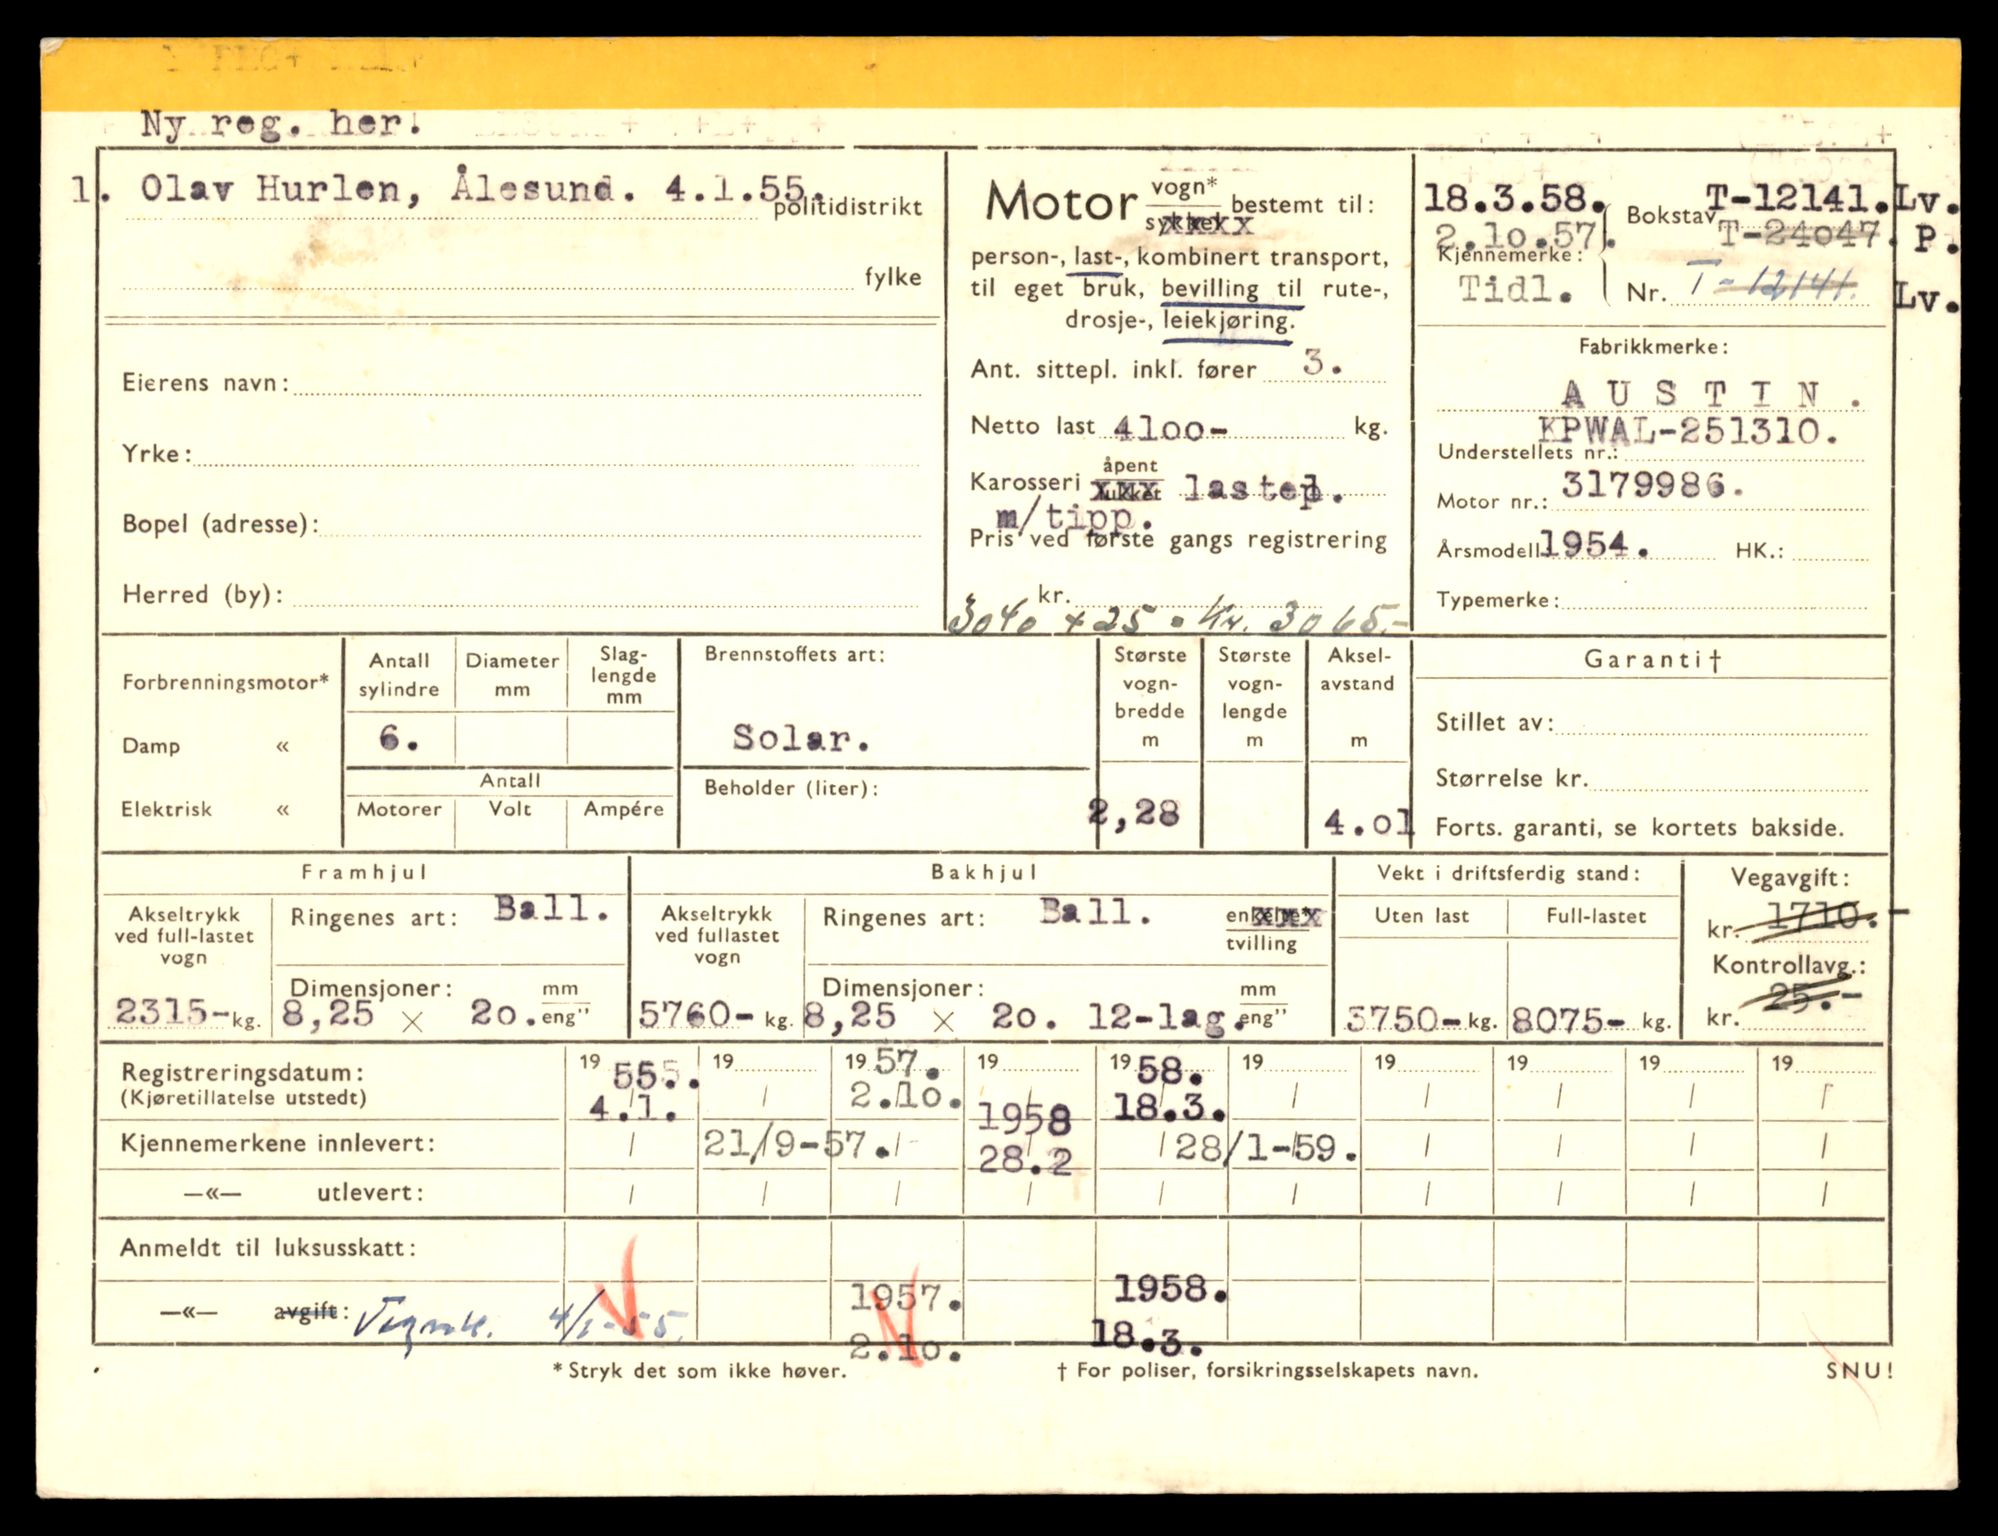 Ny reg. her.
1. Olav Hurlen, Ålesund. 4.1.55.
politidistrikt
fylke
Eierens navn:
Yrke:
Bopel (adresse):
Herred (by):
Motor vogn* sykkel xxxx bestemt til:
person-, last-, kombinert transport,
til eget bruk, bevilling til rute-,
drosje-, leiekjøring.
Ant. sittepl. inkl. fører 3.
Netto last 4100- kg.
Karosseri åpent lukket xxx lastepl.
m/tipp.
Pris ved første gangs registrering
kr.
3040 + 25 = Kr. 3065.-
18.3.58. Bokstav T-12141. Lv.
2.10.57. T-24047. P.
Kjennemerke:
Tidl. Nr. T-12141. Lv.
Fabrikkmerke:
AUSTIN.
KPWAL-251310.
Understellets nr.:
Motor nr.: 3179986.
Årsmodell 1954. HK.:
Typemerke:
Forbrenningsmotor*
Damp «
Elektrisk «
Antall sylindre
Diameter mm
Slag-lengde mm
6.
Antall
Motorer Volt Ampére
Brennstoffets art:
Solar.
Beholder (liter):
Største vogn-bredde m
Største vogn-lengde m
Aksel-avstand m
2,28 4.01
Garanti†
Stillet av:
Størrelse kr.
Forts. garanti, se kortets bakside.
Framhjul
Akseltrykk ved full-lastet vogn
Ringenes art: Ball.
Dimensjoner: mm
2315- kg. 8,25 × 20. eng"
Bakhjul
Akseltrykk ved fullastet vogn
Ringenes art: Ball. enkelte* xxx
tvilling
Dimensjoner: mm
5760- kg. 8,25 × 20. 12-lag. eng"
Vekt i driftsferdig stand:
Uten last Full-lastet
3750- kg. 8075- kg.
Vegavgift:
kr. 1710.-
Kontrollavg.:
kr. 25.-
Registreringsdatum: 19 55. 19 19 57. 19 19 58. 19 19 19 19 19
(Kjøretillatelse utstedt) 4.1. / 2.10. 1958 18.3. / / / / /
Kjennemerkene innlevert: / 21/9-57. / 28.2 / 28/1-59. / / / /
—«— utlevert: / / / / / / / / / /
Anmeldt til luksusskatt:
—«— avgift: Vegavk. 4/1-55. 1957. 1958.
2.10. 18.3.
* Stryk det som ikke høver. † For poliser, forsikringsselskapets navn. SNU!